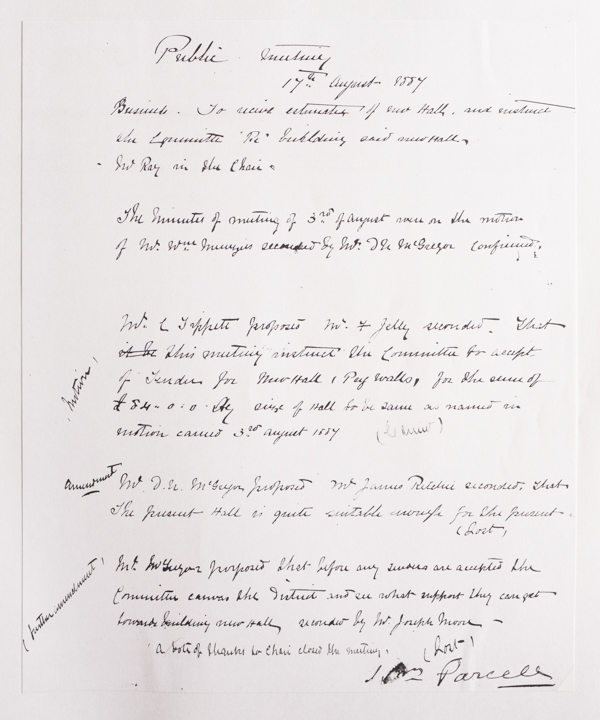 Public meeting
17th August 1887
Business. To receive estimates of new Hall, and instruct
the Committee "Re" building said new Hall.
Mr Ray in the Chair.
The Minutes of meeting of 3rd of August were on the motion
of Mr. Wm Menzies seconded by Mr. D. N. McGregor confirmed.
Motion
Mr. C Tippett proposed Mr. F Jelly seconded. That
it be this meeting instruct the Committee to accept
of Tender for New Hall, for the sum of
£84-0-0. size of Hall to be same as named in
motion carried 3rd August 1887 (Carried)
Amendment
Mr. D. N. McGregor proposed Mr James Ritchie seconded. That
the present Hall is quite suitable enough for the present.
(Lost)
(further amendment)
Mr. McGregor proposed that before any are accepted the
Committee canvas the District and see what support they can get
towards building new Hall, seconded by Mr. Joseph Moon
(Lost)
A vote of thanks to Chair closed the meeting.
Parcell